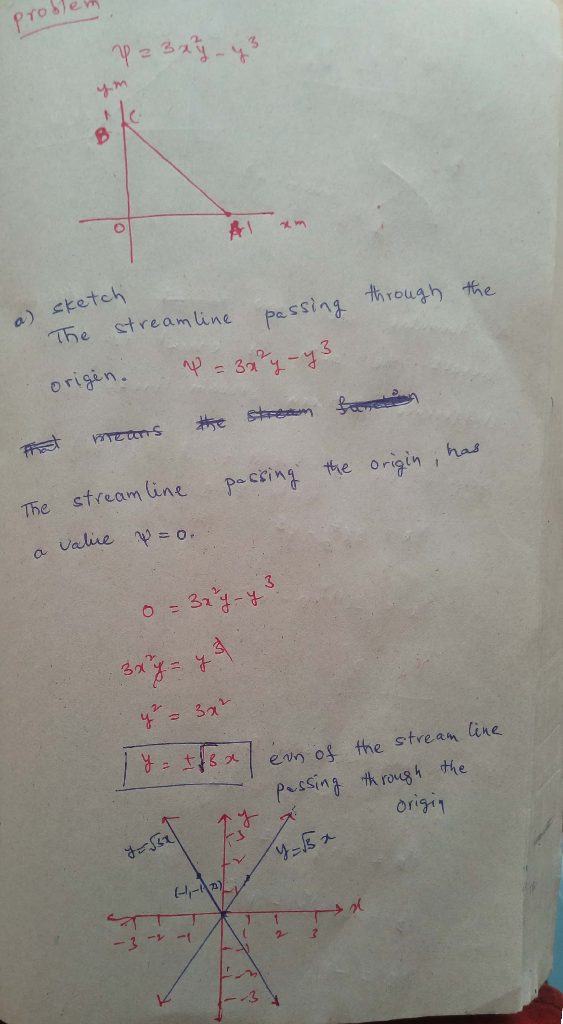 problem
ψ = 3x²y - y³
y m
1 C
B
O A 1 x m
a) sketch
The streamline passing through the
origin. ψ = 3x²y - y³
The streamline passing the origin, has
a value ψ = 0.
0 = 3x²y - y³
3x²y = y³
y² = 3x²
y = ±√3 x eqn of the stream line
passing through the
origin
y
y=√3x 3 y=√3 x
2
1
-3 -2 -1 1 2 3 x
-1
-2
-3